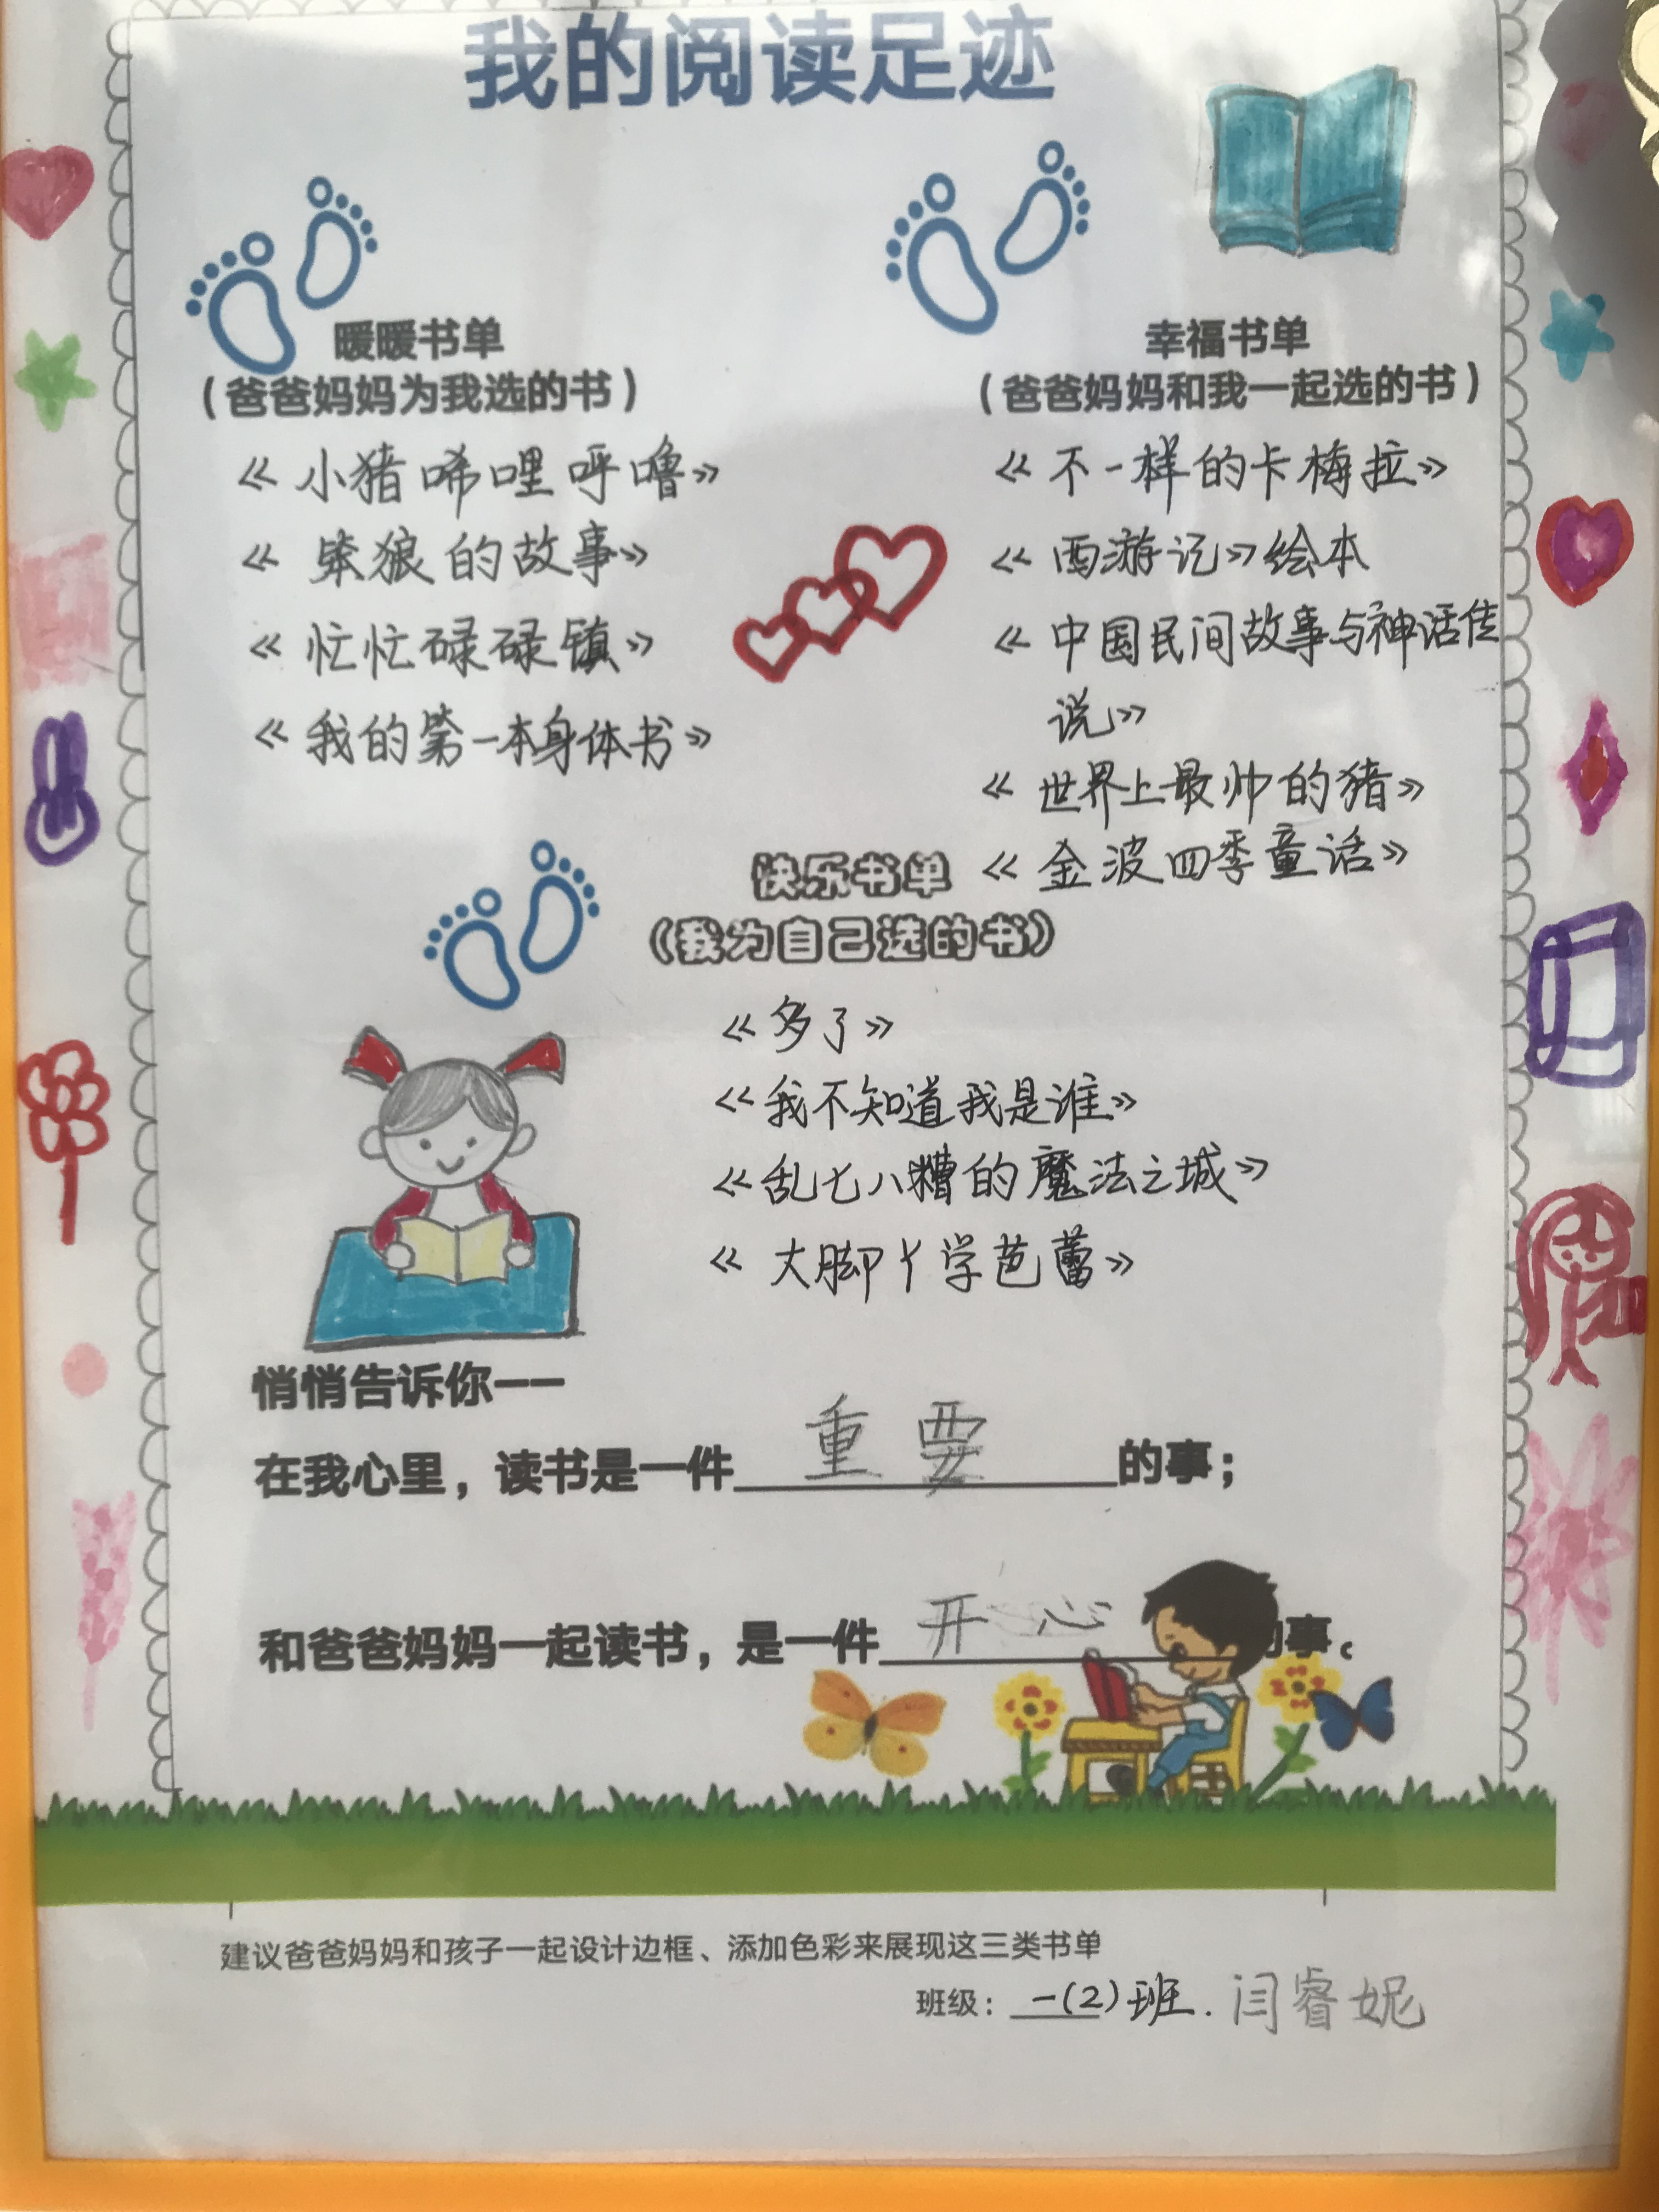 我的阅读足迹
暖暖书单
（爸爸妈妈为我选的书）
《小猪唏哩呼噜》
《笨狼的故事》
《忙忙碌碌镇》
《我的第一本身体书》
幸福书单
（爸爸妈妈和我一起选的书）
《不一样的卡梅拉》
《西游记》绘本
《中国民间故事与神话传
说》
《世界上最帅的猪》
《金波四季童话》
快乐书单
（我为自己选的书）
《多了》
《我不知道我是谁》
《乱七八糟的魔法之城》
《大脚丫学芭蕾》
悄悄告诉你——
在我心里，读书是一件重要的事；
和爸爸妈妈一起读书，是一件开心的事。
建议爸爸妈妈和孩子一起设计边框、添加色彩来展现这三类书单
班级：一(2)班.闫睿妮